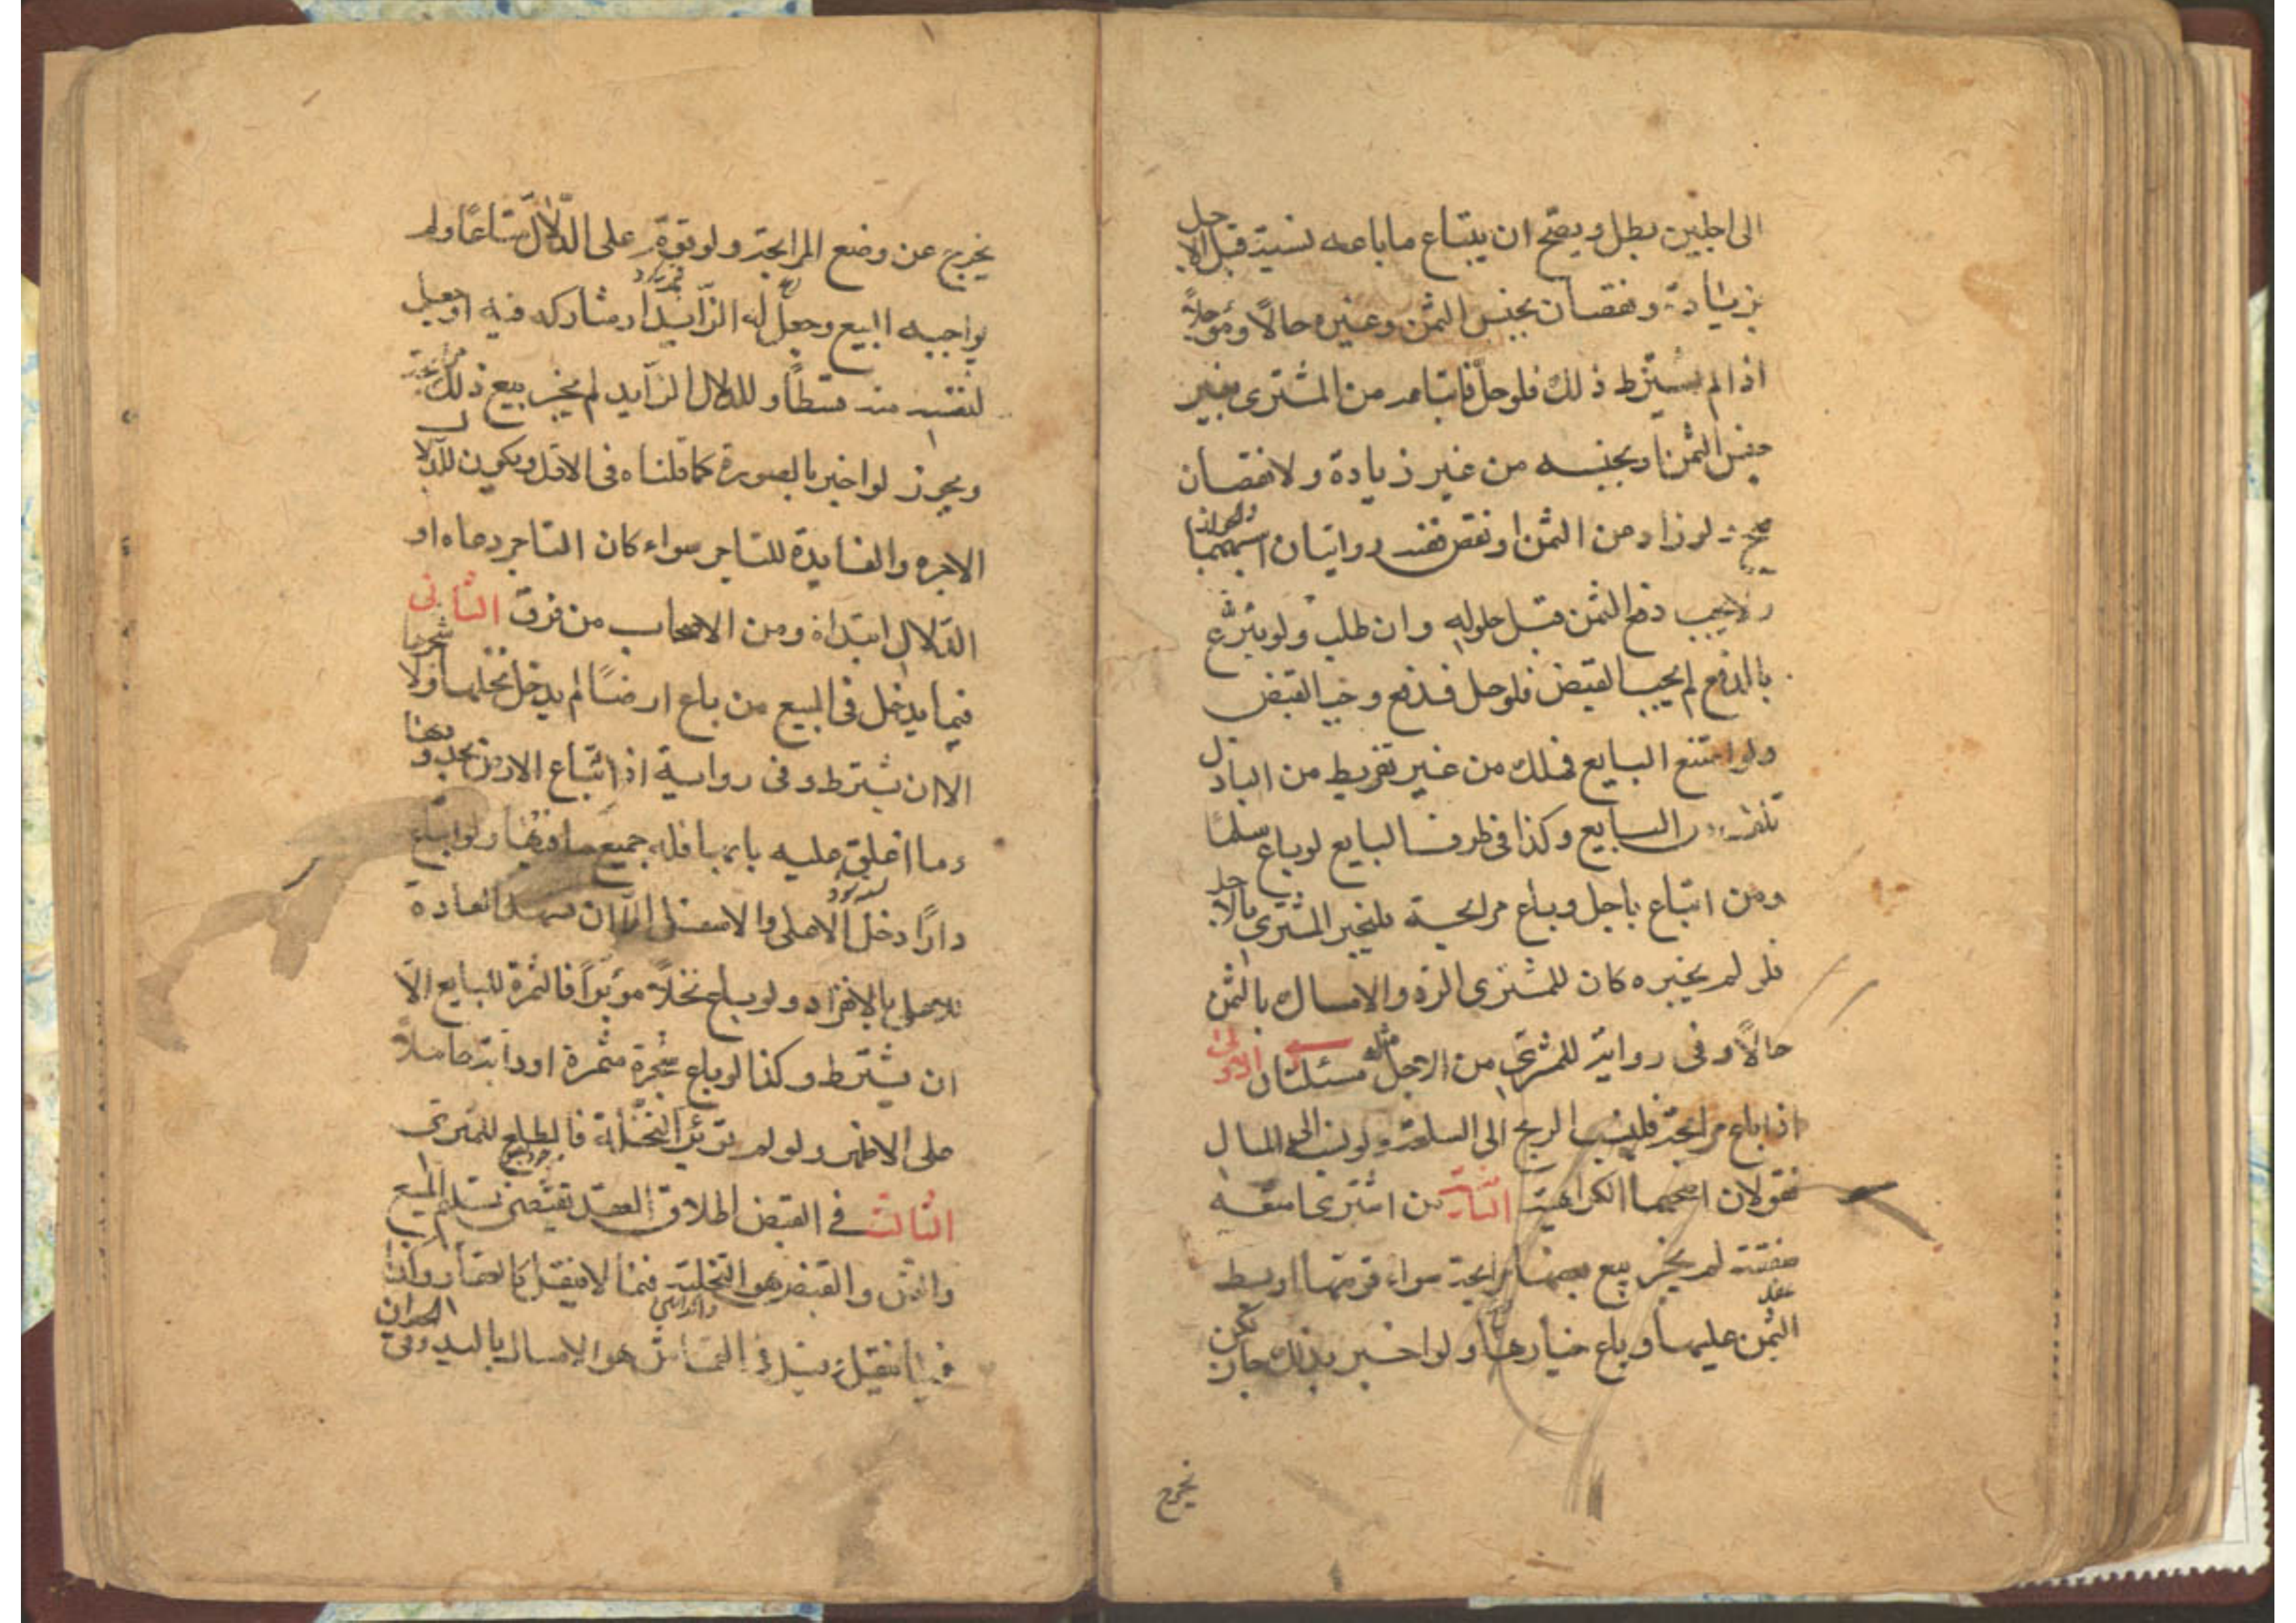 الى اجلين بطل ويصح ان يبتاع ما باعه نسية قبل الاجل
بزيادة ونقصان بجنس الثمن وغيره حالًا ومؤجلًا
اذا لم يشترط ذلك فلو حلّ فابتاعه من المشترى بغير
جنس الثمن او بجنسه من غير زيادة ولا نقصان
صح ولو زاد من الثمن او نقص ففيه روايتان اشبههما الجواز
ولا يجب دفع الثمن قبل حلوله وان طلب ولو تبرّع
بالدفع لم يجب القبض فلو حل فدفع وجب القبض
ولو امتنع البايع فهلك من غير تفريط من الباذل
تلف من البايع وكذا فى طرف البايع لو باع سلمًا
ومن ابتاع باجل وباع مرابحة فليخبر المشترى بالاجل
فلو لم يخبره كان للمشترى الرد والامساك بالثمن
حالًا وفى رواية للمشترى من الاجل مثله مسئلتان الاولى
اذا باع مرابحة فلينسب الربح الى السلعة ولو نسب الى المال
فقولان اصحهما الكراهية الثانية من اشترى امتعة
صفقة لم يجز بيع بعضها مرابحة سواء قومها او بسط
الثمن عليها وباع خيارها ولو اخبر بذلك جاز لكن
يخرج
يخرج عن وضع المرابحة ولو قوم على الدّلال متاعًا ولم
يواجبه البيع وجعل له الزّايد او مشاركه فيه او جعل
لنفسه منه قسطًا وللدلال الزايد لم يجز بيع ذلك مرابحة
ويجوز لو اخبر بالصورة كما قلناه فى الاول ويكون للدلال
الاجرة والفايدة للتاجر سواء كان التاجر دعاه او
الدّلال ابتداه ومن الاصحاب من فرق الثانى
فيما يدخل فى المبيع من باع ارضًا لم يدخل نخلها ولا شجرها
الا ان يشترط وفى رواية اذا ابتاع الارض بحدودها
وما اغلق عليه بابها فله جميع ما فيها ولو ابتاع
دارًا دخل الاعلى والاسفل الّا ان تشهد العادة
للاعلى بالانفراد ولو باع نخلًا مؤبّرًا فالثمرة للبايع الّا
ان يشترط وكذا لو باع شجرة مثمرة او دابة حاملًا
على الاظهر ولو لم تؤبّر النخلة فالطلع للمشترى
الثالث فى القبض اطلاق العقد يقتضى تسليم المبيع
والثمن والقبض هو التخلية فيما لا ينقل كالعقار وكذا
فيما ينقل وقيل فى القماش هو الامساك باليد وفى الحيوان